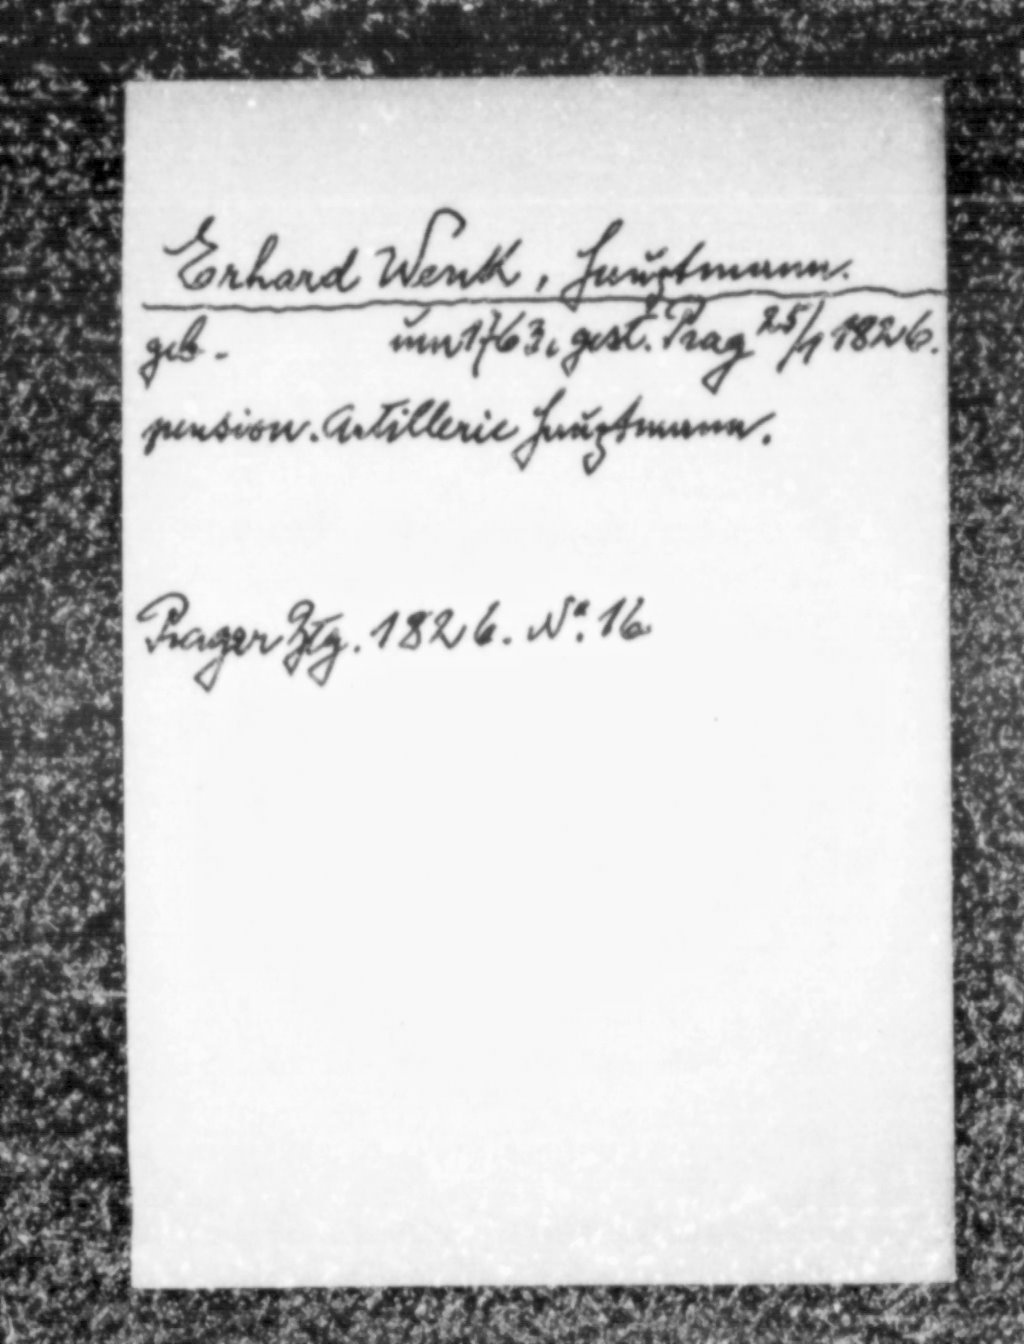 Erhard Wenk, Hauptmann.
geb. um 1763, gest. Prag 25/1 1826.
pension. Artillerie Hauptmann.
Prager Ztg. 1826. No. 16